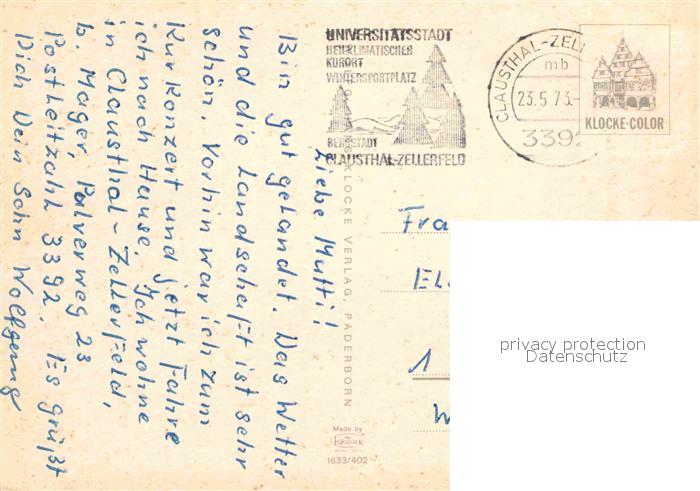 UNIVERSITÄTSSTADT
HEILKLIMATISCHER
KURORT
WINTERSPORTPLATZ
BERGSTADT
CLAUSTHAL-ZELLERFELD
CLAUSTHAL-ZELL
mb
23.5.73.-
3392
KLOCKE-COLOR
Liebe Mutti!
Bin gut gelandet. Das Wetter
und die Landschaft ist sehr
schön. Vorhin war ich zum
Kurkonzert und jetzt fahre
ich nach Hause. Ich wohne
in Clausthal-Zellerfeld,
b. Mager, Pulverweg 23
Postleitzahl 3392. Es grüßt
Dich Dein Sohn Wolfgang
KLOCKE VERLAG, PADERBORN
Made by
KRÜGER
1633/402
Fra
El
1
W
privacy protection
Datenschutz